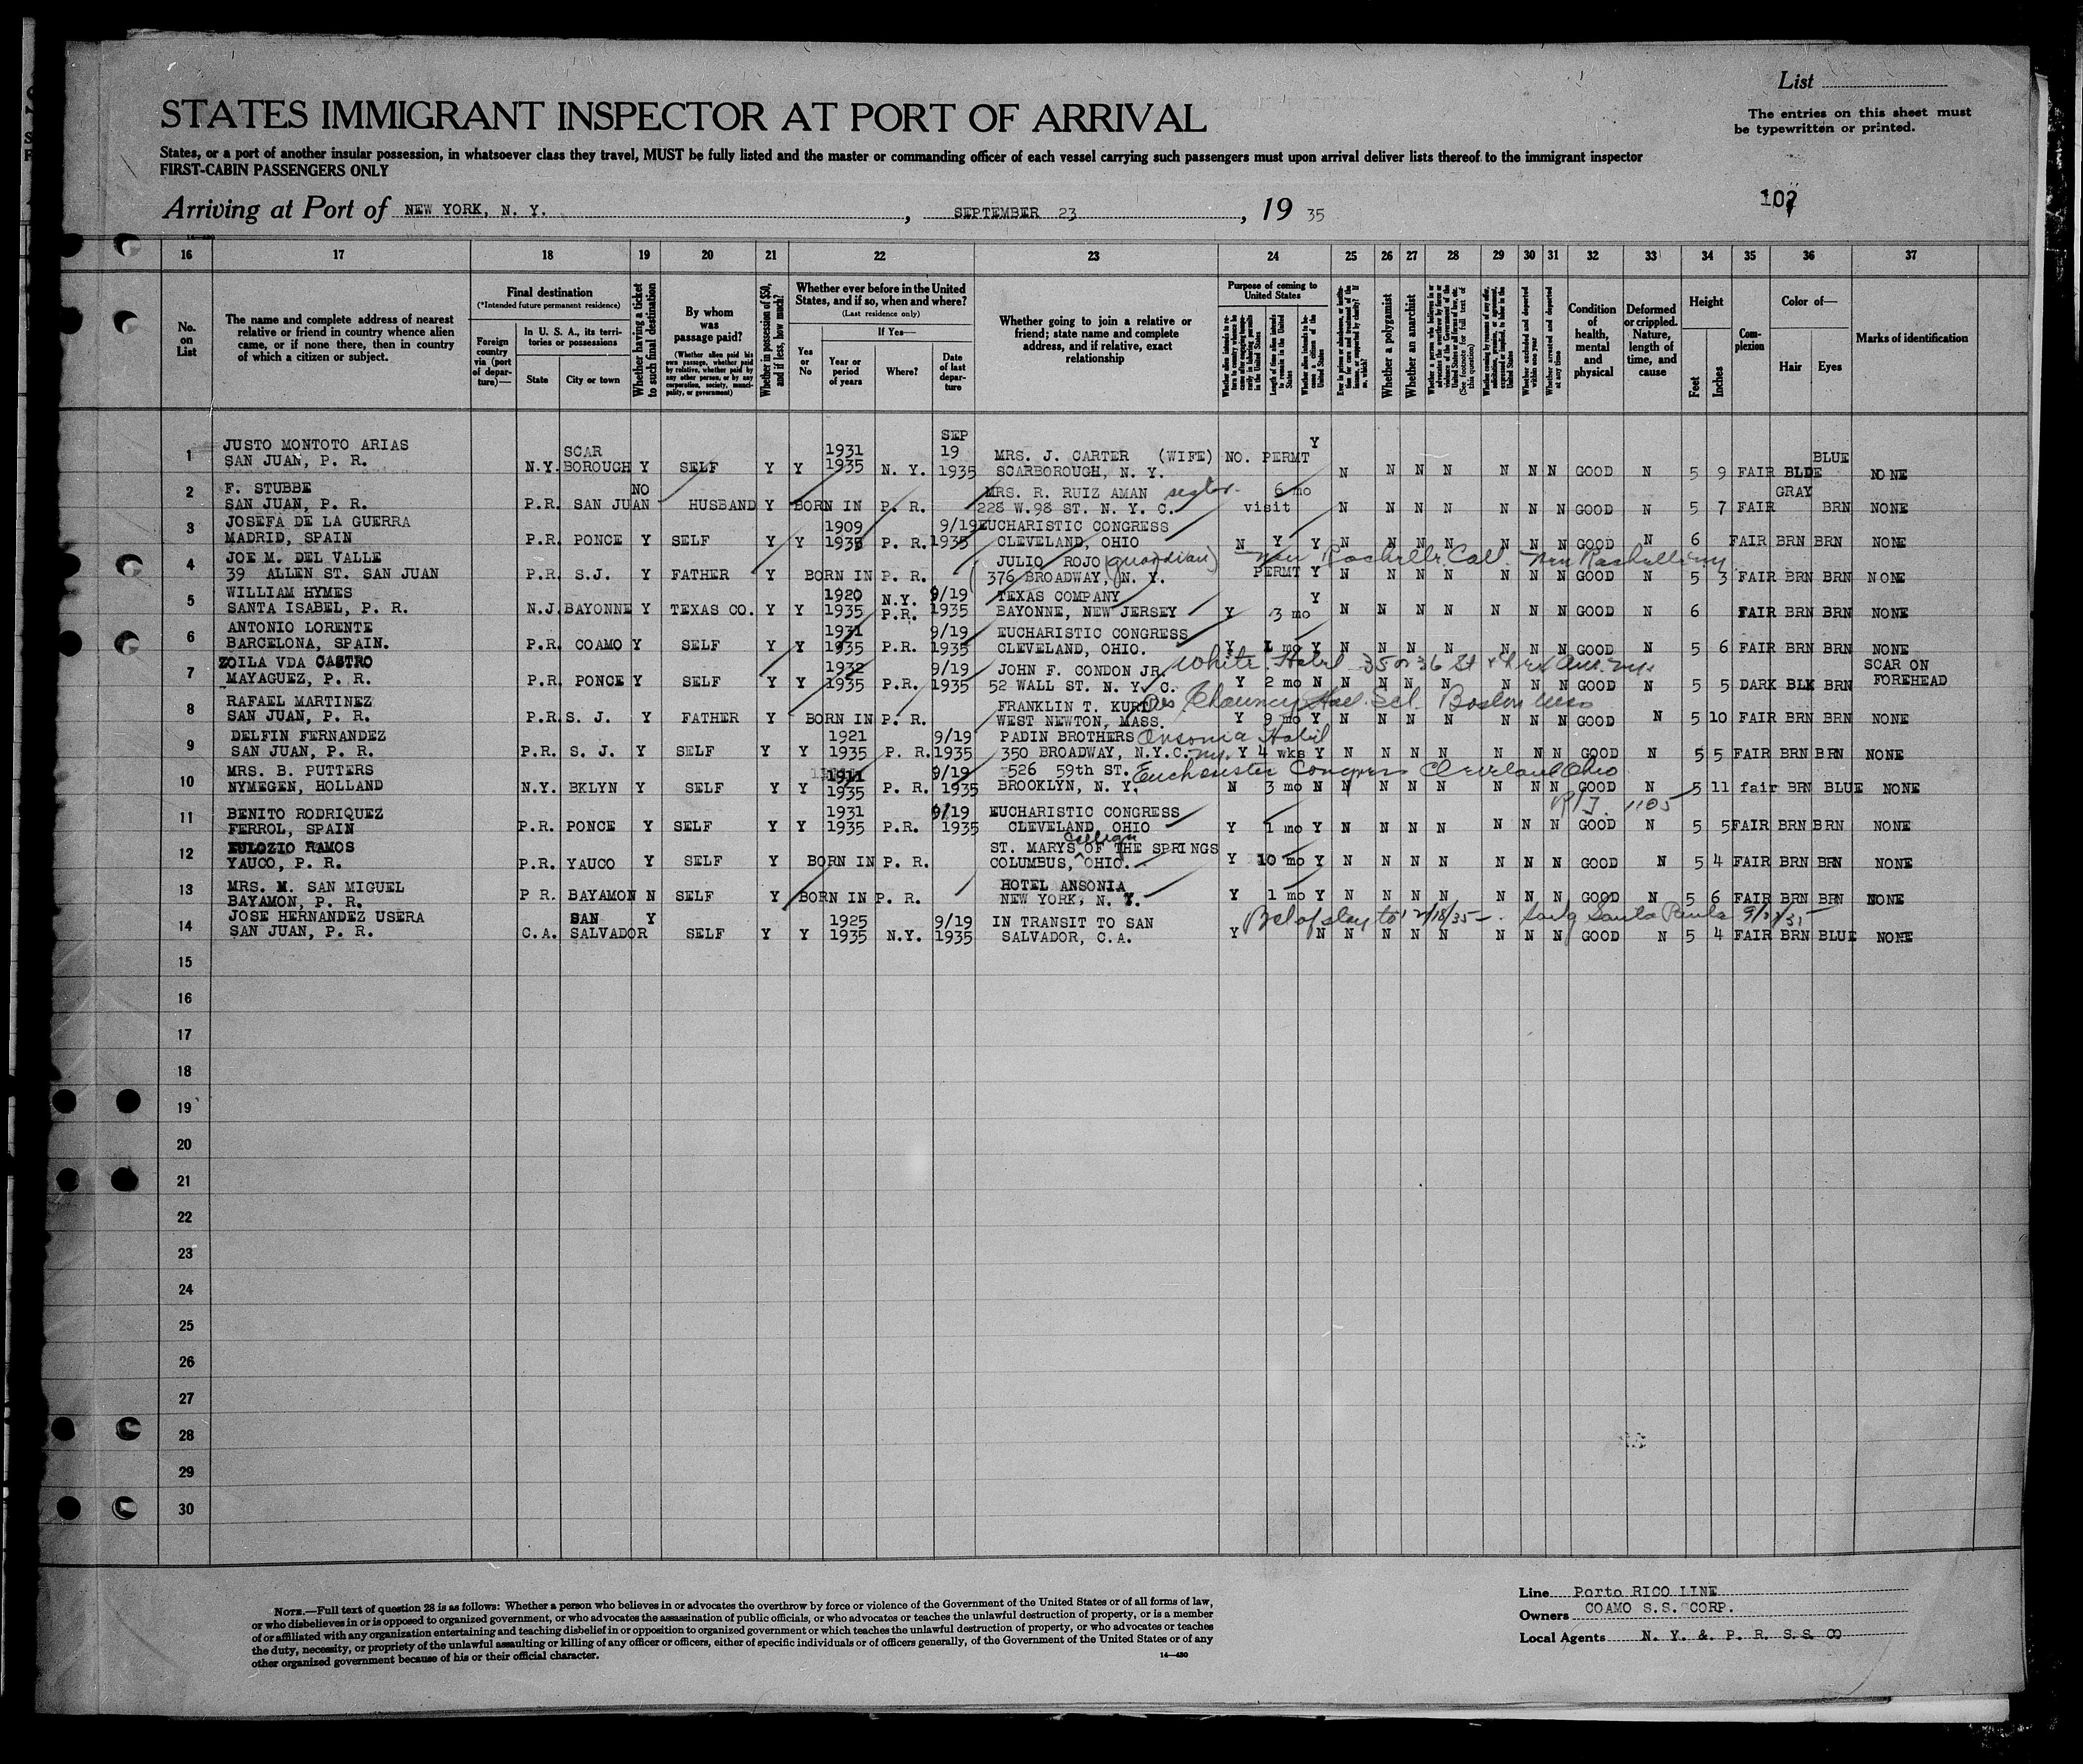 List
STATES IMMIGRANT INSPECTOR AT PORT OF ARRIVAL
The entries on this sheet must
be typewritten or printed.
States, or a port of another insular possession, in whatsoever class they travel, MUST be fully listed and the master or commanding officer of each vessel carrying such passengers must upon arrival deliver lists thereof to the immigrant inspector
FIRST-CABIN PASSENGERS ONLY
Arriving at Port of NEW YORK, N. Y. , SEPTEMBER 23 , 19 35
107
16 17 18 19 20 21 22 23 24 25 26 27 28 29 30 31 32 33 34 35 36 37
No. on List
The name and complete address of nearest relative or friend in country whence alien came, or if none there, then in country of which a citizen or subject.
Final destination
(*Intended future permanent residence)
Foreign country via (port of departure)—
In U. S. A., its territories or possessions
State City or town
Whether having a ticket to such final destination
By whom was passage paid?
(Whether alien paid his own passage, whether paid by relative, whether paid by any other person, or by any corporation, society, municipality, or government)
Whether in possession of $50, and if less, how much?
Whether ever before in the United States, and if so, when and where?
(Last residence only)
Yes or No
If Yes—
Year or period of years
Where?
Date of last departure
Whether going to join a relative or friend; state name and complete address, and if relative, exact relationship
Purpose of coming to United States
Length of time alien intends to remain in the United States
Whether alien intends to become a citizen of the United States
Whether a polygamist
Whether an anarchist
(See footnote for full text of this question)
Whether excluded and deported within one year
Whether arrested and deported at any time
Condition of health, mental and physical
Deformed or crippled. Nature, length of time, and cause
Height
Feet Inches
Complexion
Color of—
Hair Eyes
Marks of identification
SEP
JUSTO MONTOTO ARIAS SCAR 1931 19 MRS. J. CARTER (WIFE) NO. PERMT Y BLUE
1 SAN JUAN, P. R. N.Y. BOROUGH Y SELF Y Y 1935 N. Y. 1935 SCARBOROUGH, N. Y. N N N N N N N GOOD N 5 9 FAIR BLDE NONE
2 F. STUBBE NO MRS. R. RUIZ AMAN 6 mo GRAY
SAN JUAN, P. R. P.R. SAN JUAN HUSBAND Y BORN IN P. R. 228 W.98 ST. N. Y. C. visit N N N N N N N GOOD N 5 7 FAIR BRN NONE
3 JOSEFA DE LA GUERRA 1909 9/19 EUCHARISTIC CONGRESS
MADRID, SPAIN P.R. PONCE Y SELF Y Y 1935 P. R. 1935 CLEVELAND, OHIO N Y Y N N N N N N N GOOD N 6 FAIR BRN BRN NONE
4 JOE M. DEL VALLE JULIO ROJO (guardian) New Rochelle Coll. New Rochelle ny
39 ALLEN ST. SAN JUAN P.R. S.J. Y FATHER Y BORN IN P. R. 376 BROADWAY, N. Y. PERMT Y N N N N N N N GOOD N 5 3 FAIR BRN BRN NONE
5 WILLIAM HYMES 1920 N.Y. 9/19 TEXAS COMPANY Y
SANTA ISABEL, P. R. N.J. BAYONNE Y TEXAS CO. Y Y 1935 P.R. 1935 BAYONNE, NEW JERSEY Y 3 mo N N N N N N N GOOD N 6 FAIR BRN BRN NONE
6 ANTONIO LORENTE 1931 9/19 EUCHARISTIC CONGRESS
BARCELONA, SPAIN. P.R. COAMO Y SELF Y Y 1935 P.R. 1935 CLEVELAND, OHIO. Y 1 mo Y N N N N N N N GOOD N 5 6 FAIR BRN BRN NONE
7 ZOILA VDA CASTRO 1932 9/19 JOHN F. CONDON JR. White Hotel SCAR ON
MAYAGUEZ, P. R. P.R. PONCE Y SELF Y Y 1935 P.R. 1935 52 WALL ST. N. Y. C. Y 2 mo N N N N N N N N GOOD N 5 5 DARK BLK BRN FOREHEAD
8 RAFAEL MARTINEZ FRANKLIN T. KURT Chauncy Hall Scl. Boston Mass
SAN JUAN, P. R. P.R. S. J. Y FATHER Y BORN IN P. R. WEST NEWTON, MASS. Y 9 mo Y N N N N N N N GOOD N 5 10 FAIR BRN BRN NONE
9 DELFIN FERNANDEZ 1921 9/19 PADIN BROTHERS Ansonia Hotel
SAN JUAN, P. R. P.R. S. J. Y SELF Y Y 1935 P. R. 1935 350 BROADWAY, N.Y.C. ny. Y 4 wks Y N N N N N N N GOOD N 5 5 FAIR BRN BRN NONE
10 MRS. B. PUTTERS 1911 9/19 526 59th ST. Eucharister Congress Cleveland Ohio
NYMEGEN, HOLLAND N.Y. BKLYN Y SELF Y Y 1935 P. R. 1935 BROOKLYN, N. Y. N 3 mo N N N N N N N N GOOD N 5 11 fair BRN BLUE NONE
11 BENITO RODRIQUEZ 1931 9/19 EUCHARISTIC CONGRESS 1105
FERROL, SPAIN P.R. PONCE Y SELF Y Y 1935 P.R. 1935 CLEVELAND OHIO Y 1 mo Y N N N N N N N GOOD N 5 5 FAIR BRN BRN NONE
12 EULOZIO RAMOS ST. MARYS College OF THE SPRINGS
YAUCO, P. R. P.R. YAUCO Y SELF Y BORN IN P. R. COLUMBUS, OHIO. Y 10 mo Y N N N N N N N GOOD N 5 4 FAIR BRN BRN NONE
13 MRS. M. SAN MIGUEL HOTEL ANSONIA
BAYAMON, P. R. P R. BAYAMON N SELF Y BORN IN P. R. NEW YORK, N. Y. Y 1 mo Y N N N N N N N GOOD N 5 6 FAIR BRN BRN NONE
14 JOSE HERNANDEZ USERA SAN Y 1925 9/19 IN TRANSIT TO SAN Santa Paula
SAN JUAN, P. R. C.A. SALVADOR SELF Y Y 1935 N.Y. 1935 SALVADOR, C.A. Y N N N N N N N N GOOD N 5 4 FAIR BRN BLUE NONE
15
16
17
18
19
20
21
22
23
24
25
26
27
28
29
30
NOTE.—Full text of question 28 is as follows: Whether a person who believes in or advocates the overthrow by force or violence of the Government of the United States or of all forms of law,
or who disbelieves in or is opposed to organized government, or who advocates the assassination of public officials, or who advocates or teaches the unlawful destruction of property, or is a member
of or affiliated with any organization entertaining and teaching disbelief in or opposition to organized government or which teaches the unlawful destruction of property, or who advocates or teaches
the duty, necessity, or propriety of the unlawful assaulting or killing of any officer or officers, either of specific individuals or of officers generally, of the Government of the United States or of any
other organized government because of his or their official character.
14—430
Line Porto RICO LINE
Owners COAMO S.S. CORP.
Local Agents N. Y. & P. R. S.S. CO